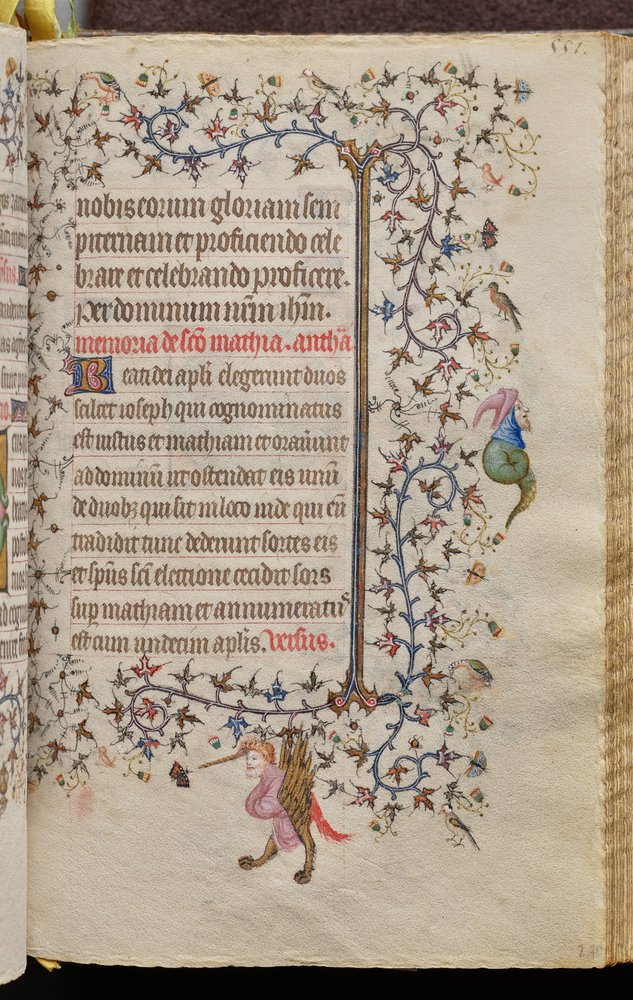 551.
nobis eorum gloriam sem
piternam et proficiendo cele
brare et celebrando proficere.
per dominum nrm ihm.
memoria de sco mathia. antha
Beati dei apli elegerunt duos
scilcet ioseph qui cognominatus
est iustus et mathiam et orauerunt
ad dominum ut ostendat eis unum
de duobz qui sit in loco inde qui em
tradidit tunc dederunt sortes eis
et spus sci elettione cecidit sors
sup mathiam et annumeratus
est cum undecim aplis. Versus.